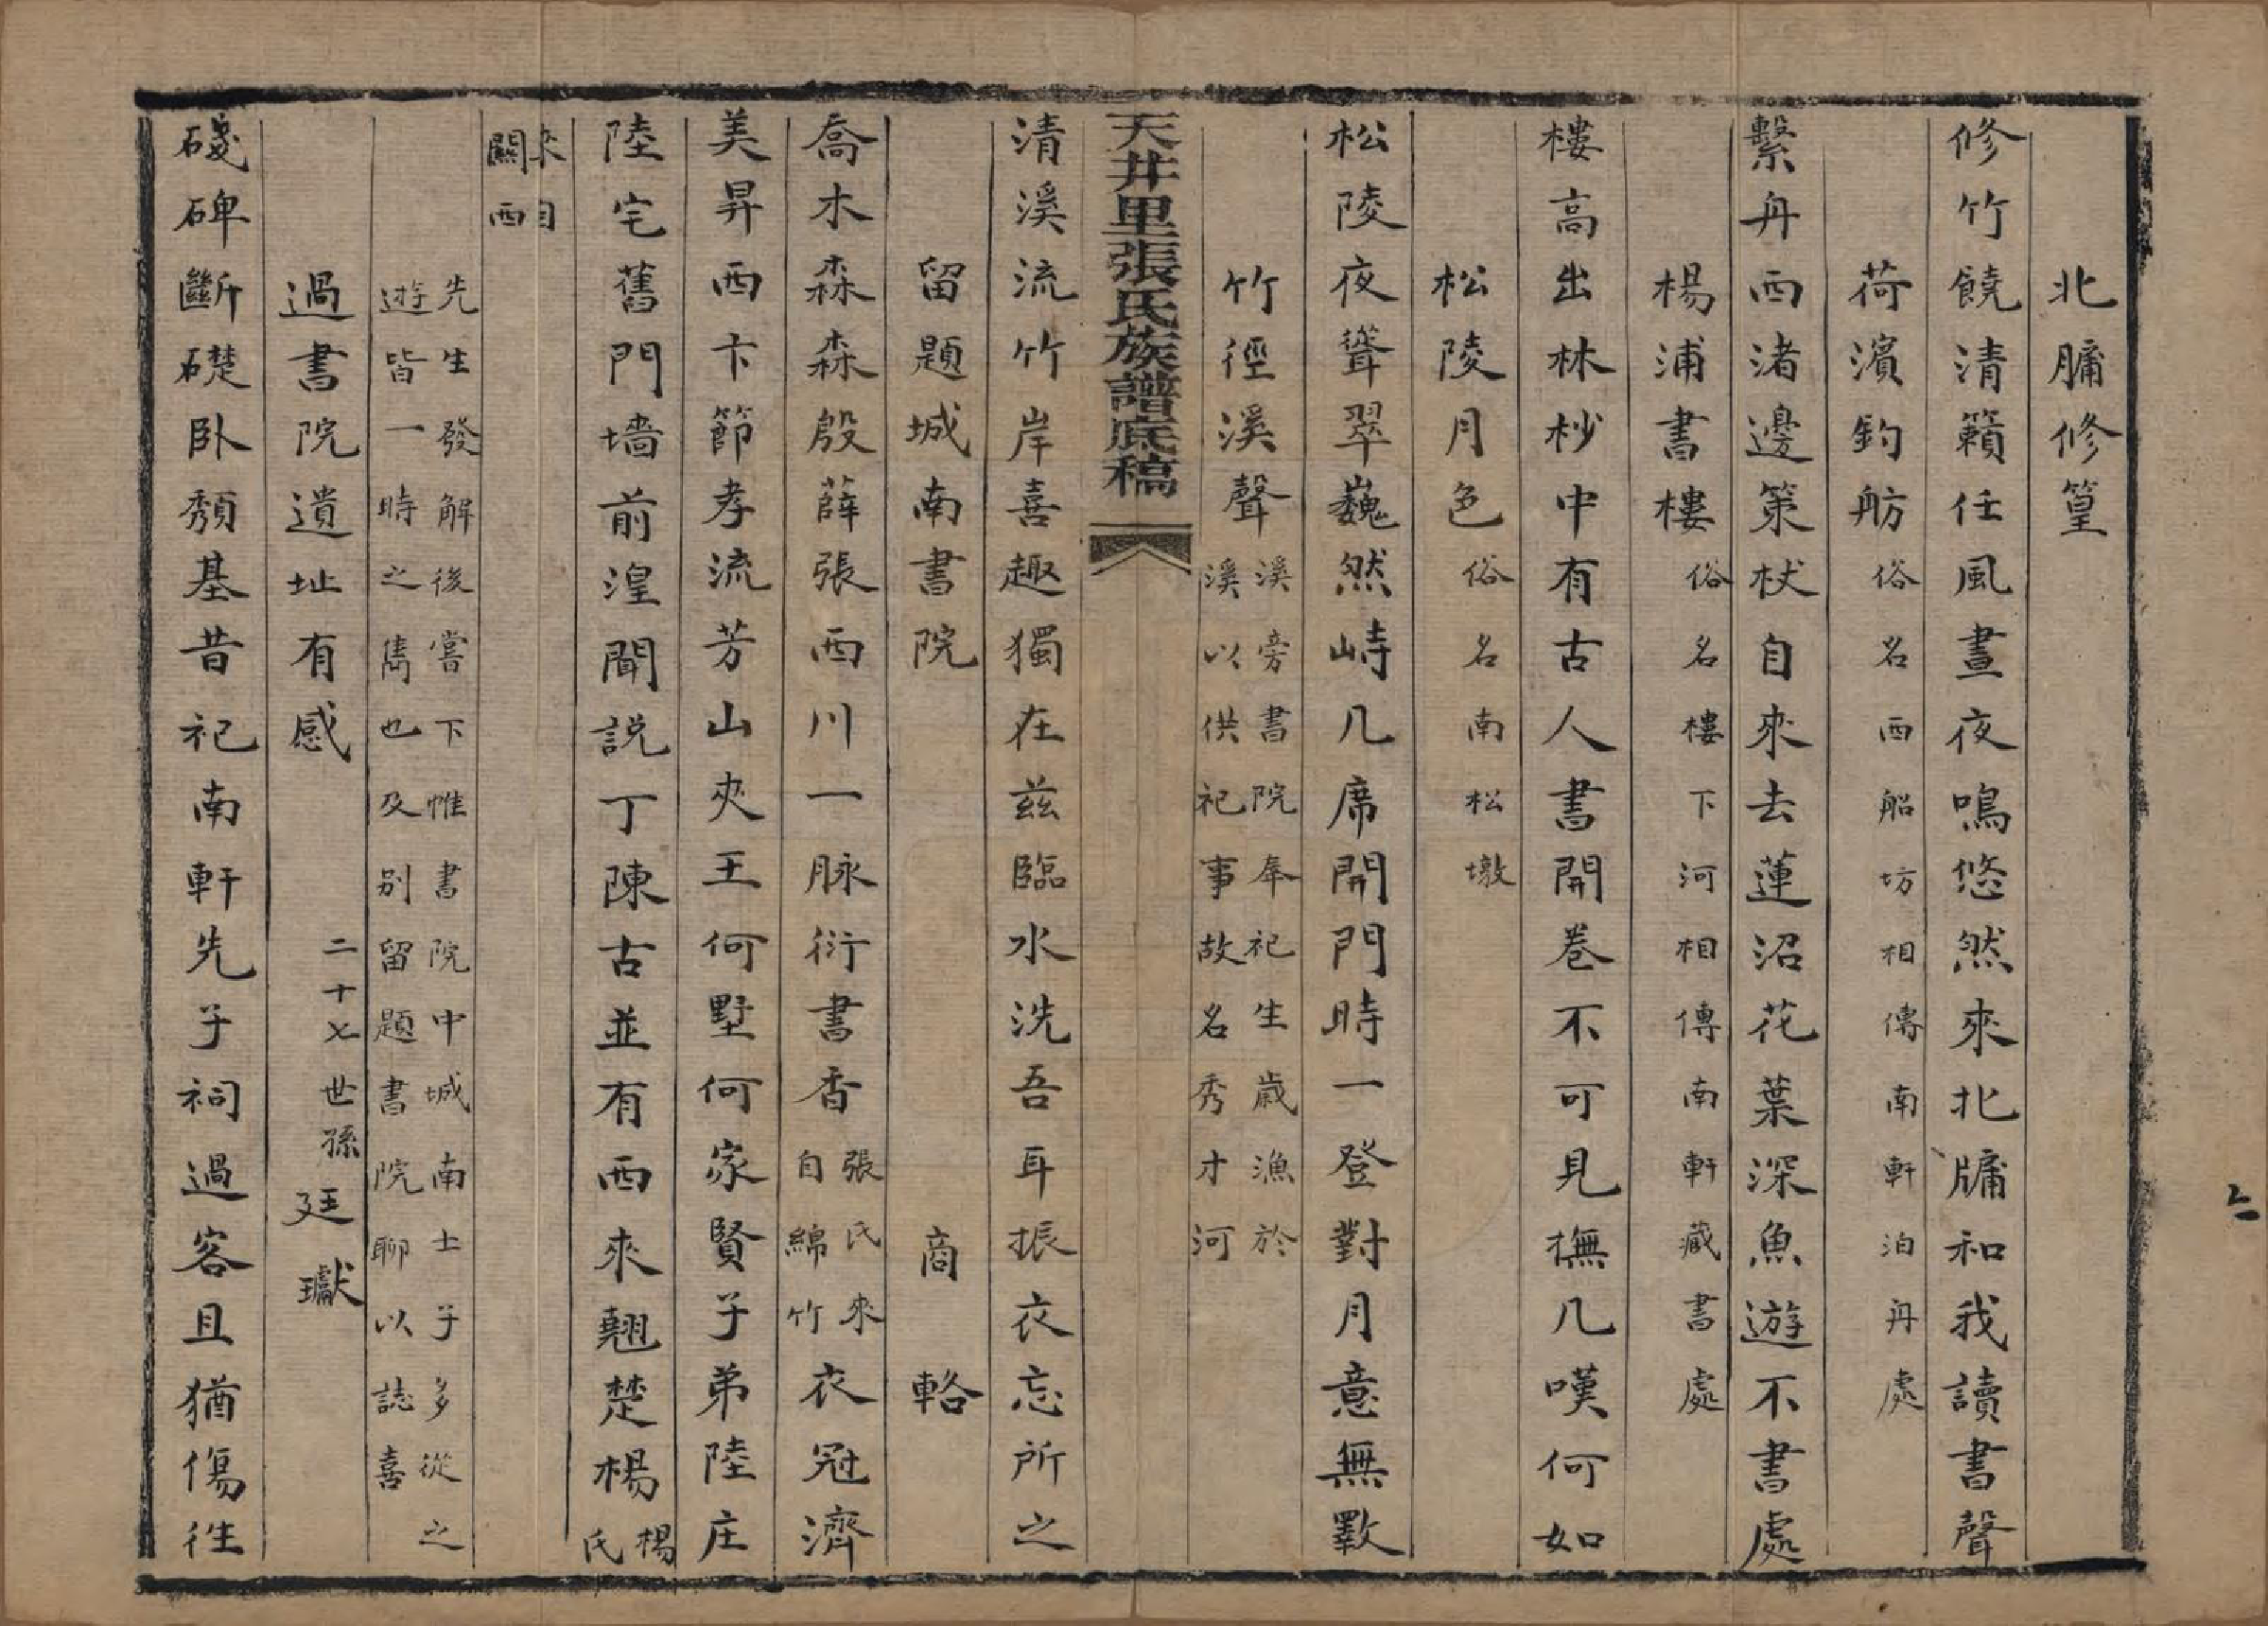 北牗修篁
修竹饒清籟任風晝夜鳴悠然來北牗和我讀書聲
荷濱釣舫俗名西船坊相傳南軒泊舟處
繫舟西渚邊策杖自來去蓮沼花葉深魚遊不書處
楊浦書樓俗名樓下河相傳南軒藏書處
樓高出林杪中有古人書開卷不可見撫几嘆何如
松陵月色俗名南松墩
松陵夜聳翠巍然峙几席開門時一登對月意無斁
竹徑溪聲溪旁書院奉祀生歲漁於
溪以供祀事故名秀才河
天井里張氏族譜底稿
清溪流竹岸喜趣獨在兹臨水洗吾耳振衣忘所之
留題城南書院 商輅
喬木森森殷薛張西川一脉衍書香張氏來
自綿竹衣冠濟
美昇西卞節孝流芳山夾王何墅何家賢子弟陸庄
陸宅舊門墻前湟聞説丁陳古並有西來翹楚楊楊
氏
來自
關西
先生發解後嘗下帷書院中城南士子多從之
遊皆一時之雋也及别留題書院聊以誌喜
過書院遺址有感 二十七世孫廷瓛
殘碑斷礎卧頽基昔祀南軒先子祠過客且猶傷徃
六